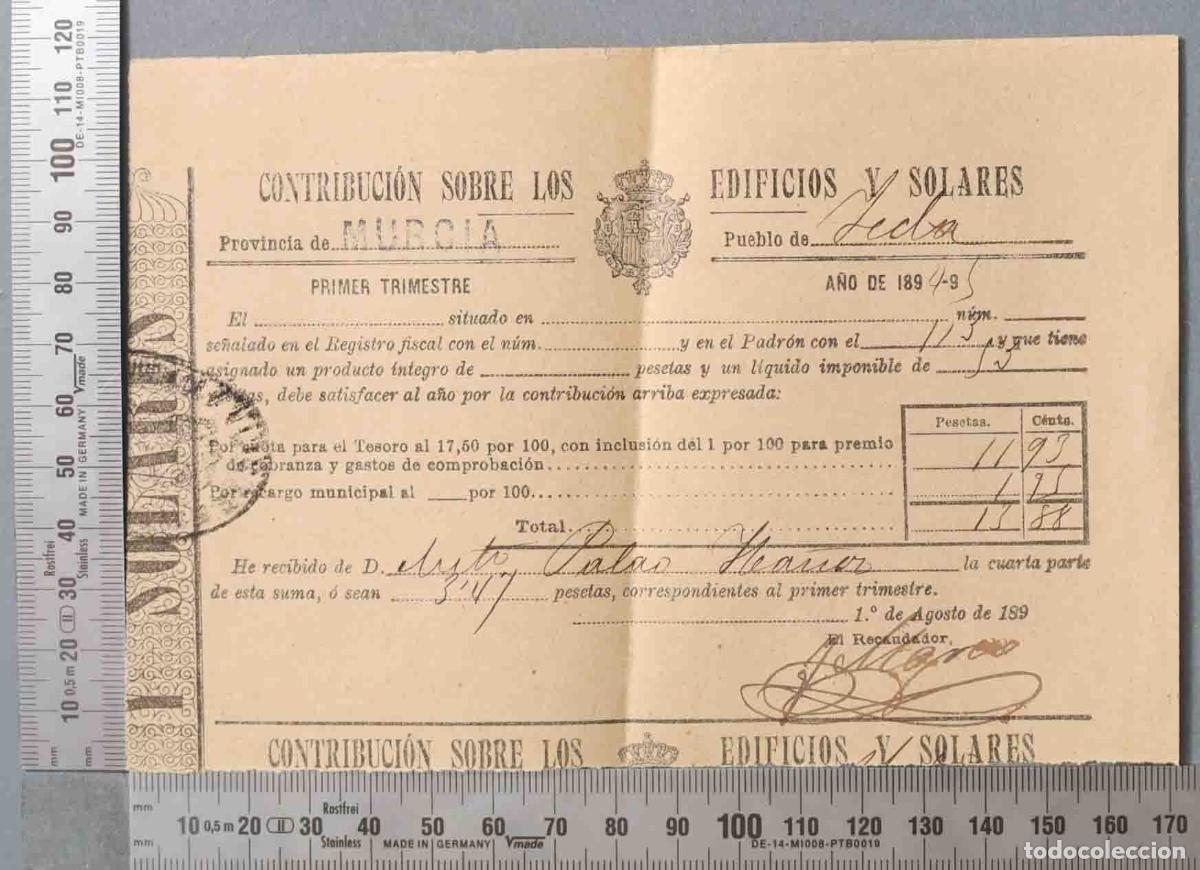 CONTRIBUCIÓN SOBRE LOS EDIFICIOS Y SOLARES
Provincia de MURCIA Pueblo de Yecla
PRIMER TRIMESTRE AÑO DE 1894-95
El situado en núm.
señalado en el Registro fiscal con el núm. y en el Padrón con el 113 y que tiene
asignado un producto íntegro de pesetas y un líquido imponible de 53
debe satisfacer al año por la contribución arriba expresada:
Pesetas. Cénts.
Por cuota para el Tesoro al 17,50 por 100, con inclusión del 1 por 100 para premio
de cobranza y gastos de comprobación 11 93
Por recargo municipal al por 100 1 95
Total 13 88
He recibido de D. Palao la cuarta parte
de esta suma, ó sean 3'47 pesetas, correspondientes al primer trimestre.
1.° de Agosto de 189
El Recaudador,
CONTRIBUCIÓN SOBRE LOS EDIFICIOS Y SOLARES
SOLARES
mm 10 0,5 m 20 II 30 40 50 60 70 80 90 100 110 120
Rostfrei
Stainless
MADE IN GERMANY Vmade
DE-14-MI008-PTB0019
mm 10 0,5 m 20 II 30 40 50 60 70 80 90 100 110 120 130 140 150 160 170
Rostfrei
mm Stainless MADE IN GERMANY Vmade DE-14-MI008-PTB0019
todocoleccion